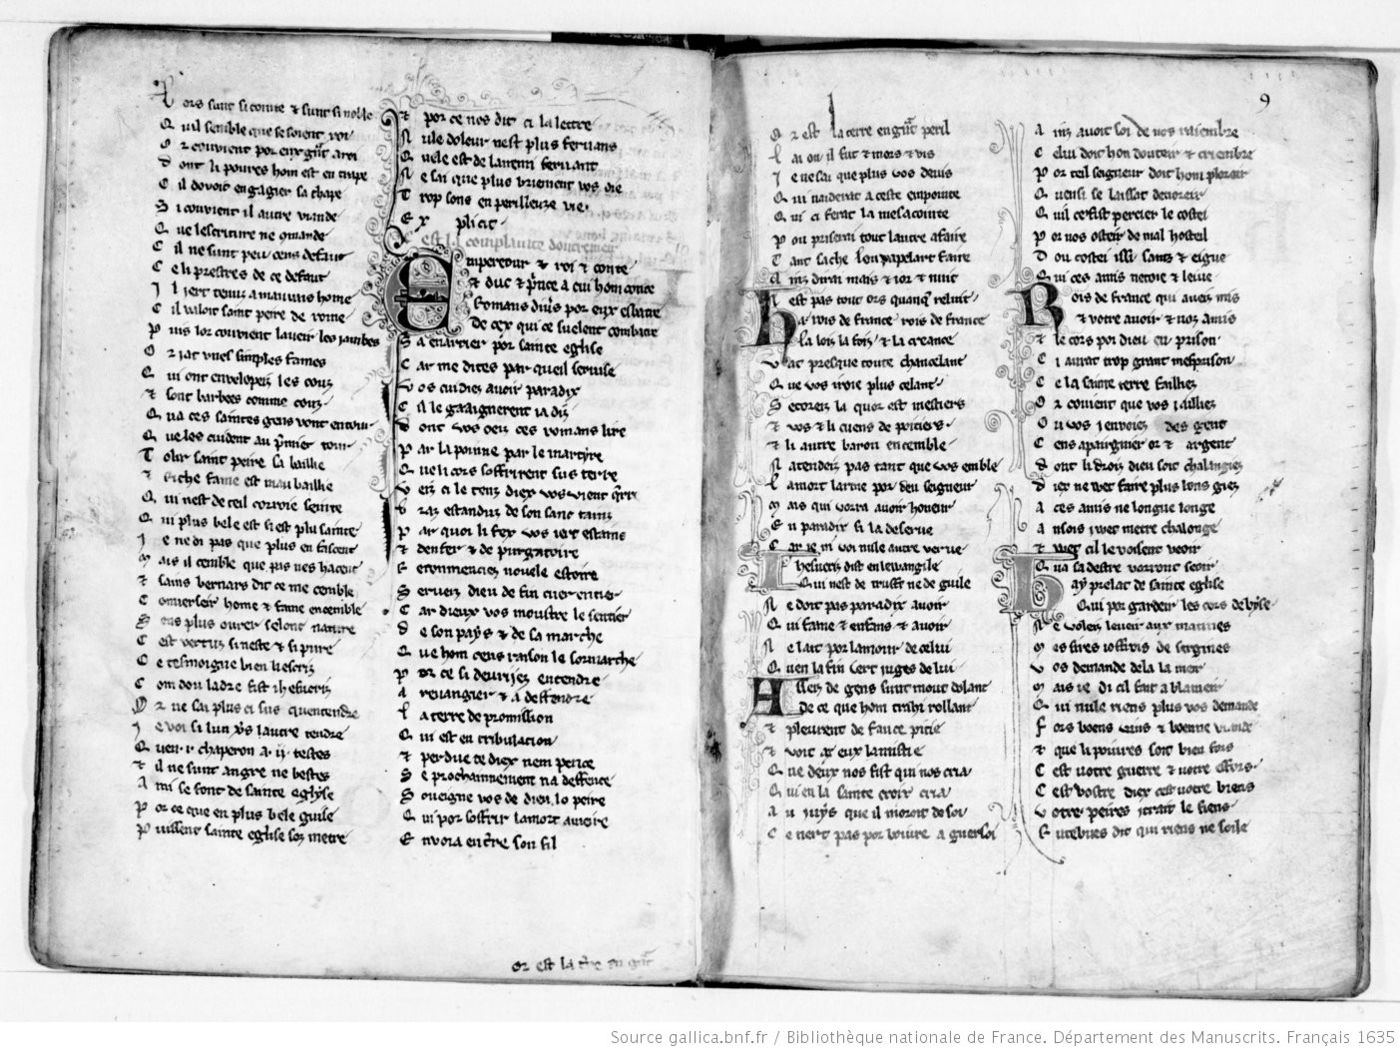 Lors sunt si cointe & sunt si noble
Quil semble que se soient roi
Or couvient por eux gnt aroi
dont li povres hom est en trepe
Cil dovoit engagier sa chape
Si couvient il autre viande
Que lescriture ne qmande
Cil ne sunt peu cens defaut
Celi prestres de ce defaut
Il iert tenuz a mauvais home
Cil valoit saint peire de rome
Puis lor couvient laver les jambes
Or jat unes simples fames
Qui ont envelopeiz les couz
& sont barbees comme couz
Qua ces saintes genz vont entour
Queles cuident au pmier tour
Tolir saint peire sa baillie
& riche fame est mau baillie
Qui nest de teil corroie seinte
Qui plus bele est si est plu sainte
Je ne di pas que plus en fascent
Mais il cemble que pas nes hacent
& sains bernars dit ce me comble
Converseir home & fame encemble
Sens plus ovrer selonc nature
Cest vertuz si neste & si pure
Ce tesmoigne bien li escriz
Com dou ladre fist ihesucriz
Or ne sai plus ci sus quentendre
Je voi si lun vers lautre tendre
Quen .i. chaperon a .ii. testes
& il ne sunt angre ne bestes
Ami se font de sainte eglyse
Por ce que en plus bele guise
Puissent sainte eglise soz metre
& por ce nos dit ci la lettre
Nule doleur nest plus fervans
Quele est de lanemi fervant
Ne sai que plus briement vos die
Trop sons en perilleuze vie
Explicit
Cest li complainte doutremer
Empereour & roi & conte
& duc & prince a cui hom conte
Romans divers por eux esbatre
De cex qui se suelent combatre
Sa enarrier por sainte eglise
Car me dites par queil servise
Vos cuidiez avoir paradix
Cil le gaaignerent jadiz
dont vos oeiz ces romans lire
Par la poinne par le martyre
Que li cors soffrirent sus terre
Veiz ci le tens diex vos vient querre
Braz estanduz de son sanc tainz
Par quoi li fex vos iert estains
& denfer & de purgatoire
Recommenciez novele estoire
Serveiz dieu de fin cuer entier
Car dieux vos moustre le sentier
De son pays & de sa marche
Que hom cens raison le sormarche
Por ce si devriez entendre
A revangier & a deffendre
La terre de promission
Qui est en tribulacion
& perdue ce diex nem pence
Se prochainnement na deffence
Soveigne vos de dieu lo peire
Qui por soffrir la mort ameire
Envoia en terre son fil
or est la tre en gnt
9
Or est la terre en gnt peril
Lai on il fut & mors & vis
Je ne sai que plus vos devis
Qui naiderat a ceste empointe
Qui ci ferat la mesacointe
Pou priserai tout lautre afaire
Tant sache lou papelart faire
Ainz dirai mais & jor & nuit
Nest pas tout ors quanquil reluit
Ha rois de france rois de france
La loiz la foiz & la creance
Vat presque toute chancelant
Que vos iroie plus celant
Secoreiz la quor est mestiers
& vos & li cuens de poitiers
& li autre baron encemble
Natendeiz pas tant que vos emble
La mort larme por deu seigneur
Mais qui vorra avoir honeur
En paradix si la deserve
Car je ni voi nule autre verve
Ihesucriz dist en lewangile
Qui nest de truffe ne de guile
Ne doit pas paradix avoir
Qui fame & enfans & avoir
Ne lait por lamour de celui
Quen la fin iert juges de lui
Asseiz de gens sunt mout dolant
De ce que hom trahi rollant
& pleurent de fauce pitie
& voit ax eux lamistie
Que deux nos fist qui nos cria
Qui en la sainte croix cria
Aux juys que il moroit de soi
Ce nert pas por boivre a guersoi
Ainz avoit soi de nos raiembre
Celui doit hon douteir & criembre
Por teil seigneur doit hom ploreir
Quensi se laissat devoreir
Quil ce fist percier le costei
Por nos osteir de mal hosteil
Dou costei issi sancz & eigue
Qui ces amis netoie & leive
Rois de france qui aveiz mis
& votre avoir & noz amis
& le cors por dieu en prison
Ci aurat trop grant mesprison
Ce la sainte terre failliez
Or covient que vos jailliez
Ou vos jenvoiez des gent
Cens apairgnier or & argent
Dont li droiz dieu soit chalangiez
diex ne wet faire plus lons giez
A ces amis ne longue longe
Ansois jwet metre chalonge
& wet cil le voisent veoir
Qua sa destre vorront seoir
Hay prelat de sainte eglise
Qui por gardeir les cors de byse
Ne voleiz leveir aux matines
Messires joffrois de sergines
Vos demande dela la mer
Mais je di cil fait a blameir
Qui nule riens plus vos demande
Fors boens vins & boenne viande
& que li poivres soit bien fors
Cest votre guerre & votre effors
Cest vostre diex cest votre biens
Votre peires itrait le fiens
Rutebues dit qui riens ne soile
Source gallica.bnf.fr / Bibliothèque nationale de France. Département des Manuscrits. Français 1635